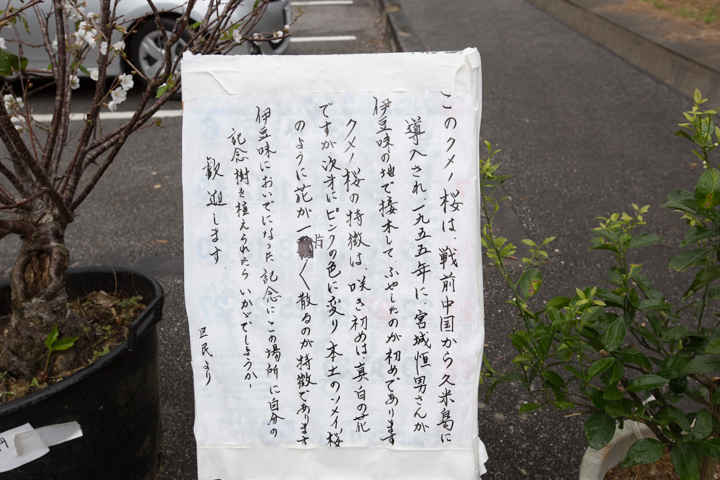 このクメノ桜は、戦前中国から久米島に
導入され、一九五五年に、宮城恒男さんが
伊豆味の地で接木して、ふやしたのが初めであります
クメノ桜の特徴は、咲き初めは真白の花
ですが次才にピンクの色に変り本土のソメイ桜
のように花が一片〱散るのが特徴であります
伊豆味においでになった記念にこの場所に自分の
記念樹を植えられたらいかがでしょうか、
歓迎します。
区民より